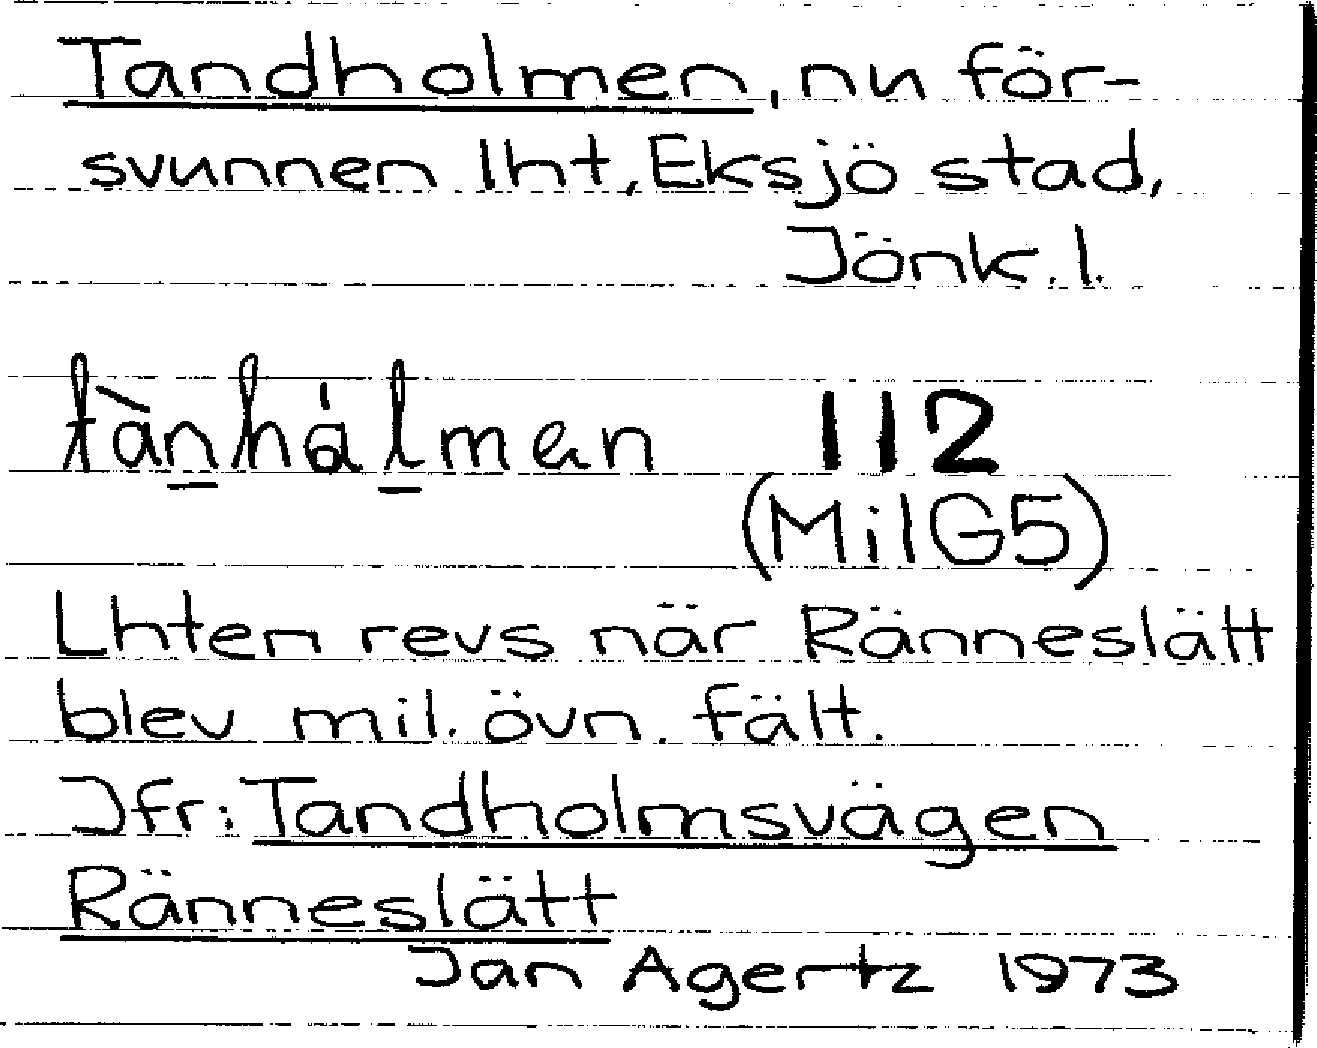 Tandholmen, nu för-
svunnen lht, Eksjö stad,
Jönk. l.
tànhålmen 112
(MilG5)
Lhten revs när Ränneslätt
blev mil. övn. fält.
Jfr: Tandholmsvägen
Ränneslätt
Jan Agertz 1973